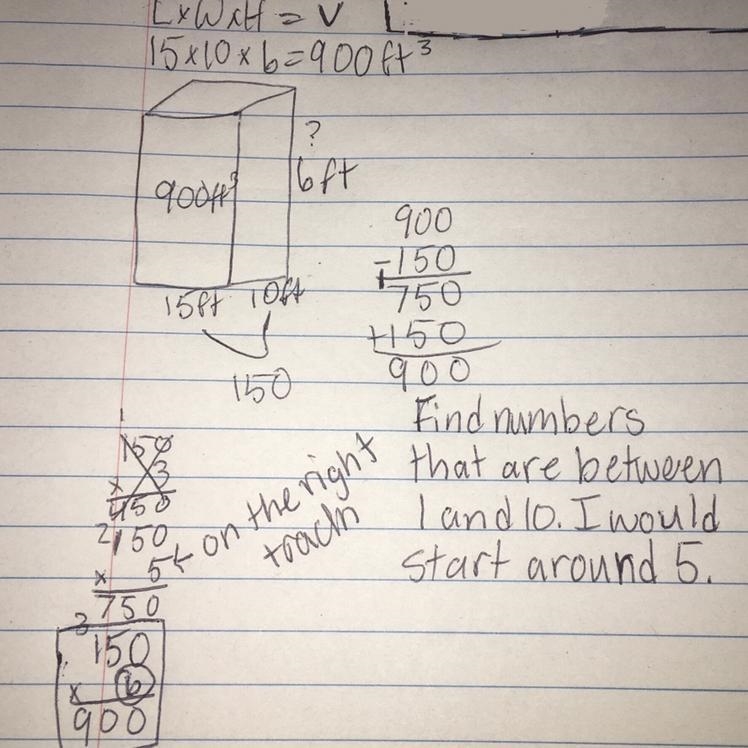 LxWxH = V
15x10x6=900ft³
?
6ft
900ft³
15ft 10ft
150
900
-150
750
+150
900
Find numbers
that are between
1 and 10. I would
start around 5.
1
150
x 3
450
2
150
x 5 ← on the right
trach
750
3
150
x 6
900